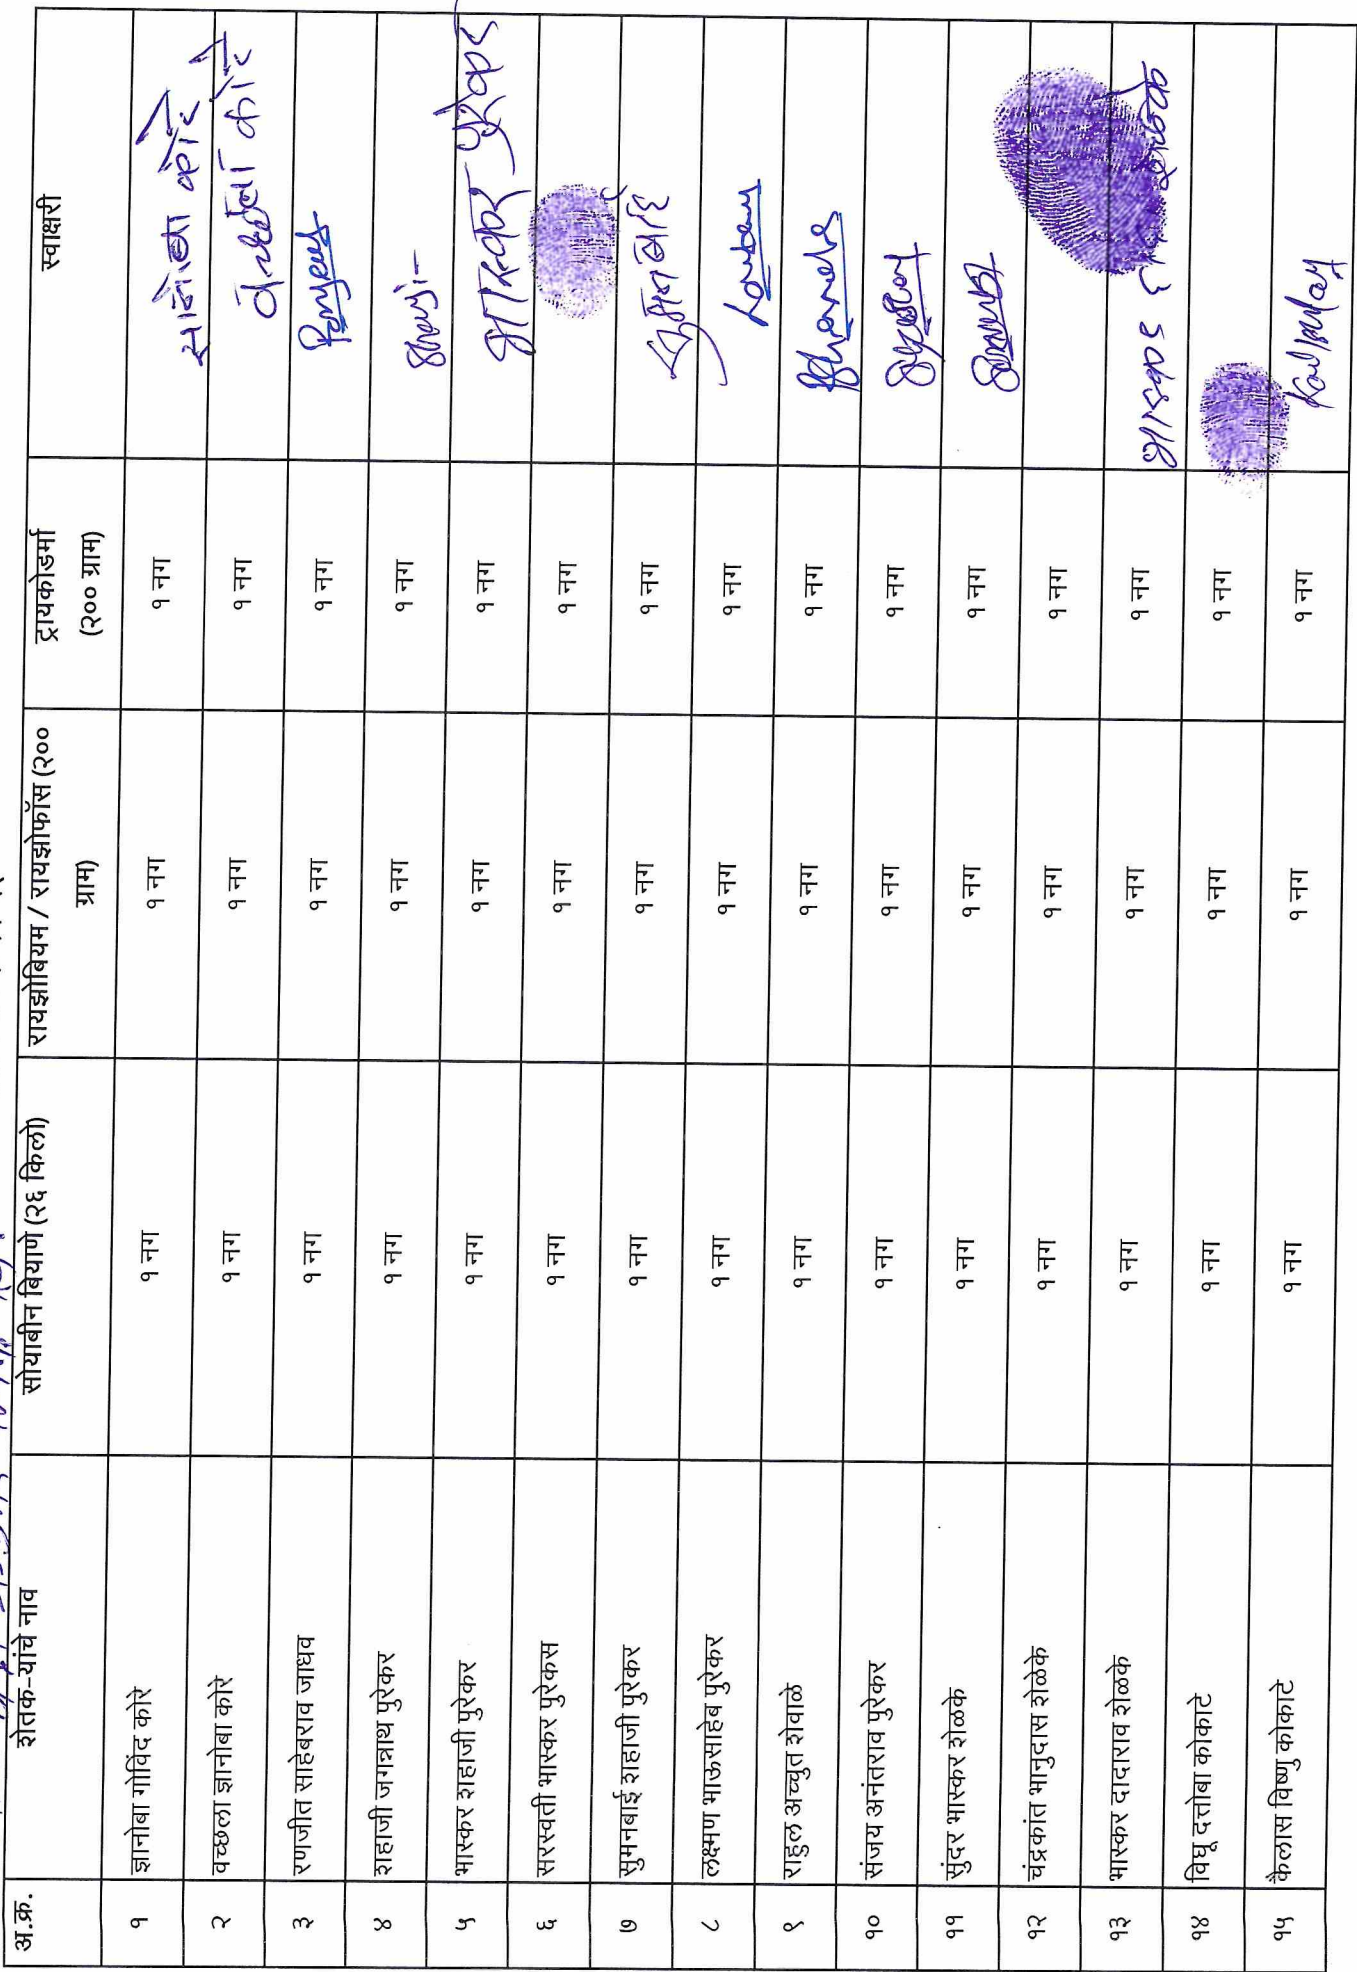 अ.क्र. शेतक-यांचे नाव सोयाबीन बियाणे (२६ किलो) रायझोबियम / रायझोफॉस (२०० ग्राम) ट्रायकोडर्मा (२०० ग्राम) स्वाक्षरी
१ ज्ञानोबा गोविंद कोरे १ नग १ नग १ नग
२ वच्छला ज्ञानोबा कोरे १ नग १ नग १ नग
३ रणजीत साहेबराव जाधव १ नग १ नग १ नग
४ शहाजी जगन्नाथ पुरेकर १ नग १ नग १ नग
५ भास्कर शहाजी पुरेकर १ नग १ नग १ नग भास्कर पुरेकर
६ सरस्वती भास्कर पुरेकस १ नग १ नग १ नग
७ सुमनबाई शहाजी पुरेकर १ नग १ नग १ नग सुमनबाई
८ लक्ष्मण भाऊसाहेब पुरेकर १ नग १ नग १ नग
९ राहुल अच्युत शेवाळे १ नग १ नग १ नग
१० संजय अनंतराव पुरेकर १ नग १ नग १ नग
११ सुंदर भास्कर शेळके १ नग १ नग १ नग
१२ चंद्रकांत भानुदास शेळेके १ नग १ नग १ नग
१३ भास्कर दादाराव शेळके १ नग १ नग १ नग
१४ विघू दत्तोबा कोकाटे १ नग १ नग १ नग
१५ कैलास विष्णु कोकाटे १ नग १ नग १ नग